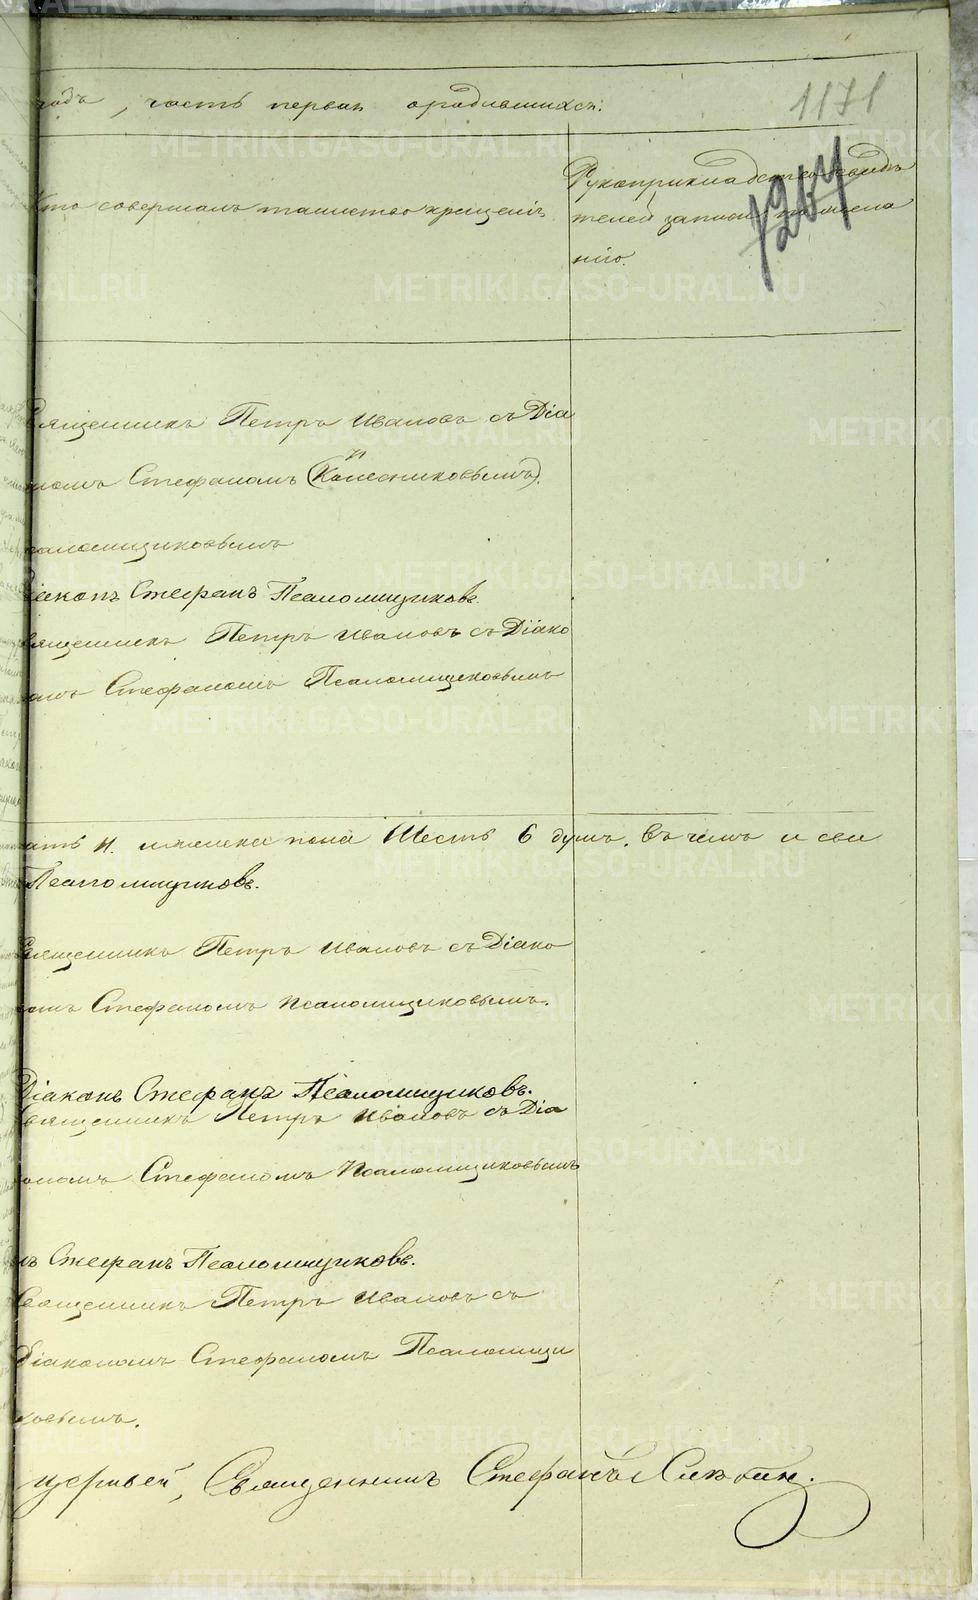 годъ, часть первая о родившихся:
1171
Кто совершалъ таинство крещенія.
Рукоприкладство свидѣ
телей записи по жела
нію.
Священникъ Петръ Ивановъ съ Діа
кономъ Стефаномъ (Колесниковымъ).
Псаломщиковымъ
Діаконъ Стефанъ Псаломщиковъ.
Священникъ Петръ Ивановъ съ Діако
номъ Стефаномъ Псаломщиковымъ
и женска пола Шесть 6 душъ. въ чемъ и сви
Псаломщиковъ.
Священникъ Петръ Ивановъ съ Діако
номъ Стефаномъ Псаломщиковымъ.
Діаконъ Стефанъ Псаломщиковъ.
Священникъ Петръ Ивановъ съ Діа
кономъ Стефаномъ Псаломщиковымъ
Стефанъ Псаломщиковъ.
Священникъ Петръ Ивановъ съ
Діакономъ Стефаномъ Псаломщи
ковымъ.
церквей, Священникъ Стефанъ
METRIKI.GASO-URAL.RU